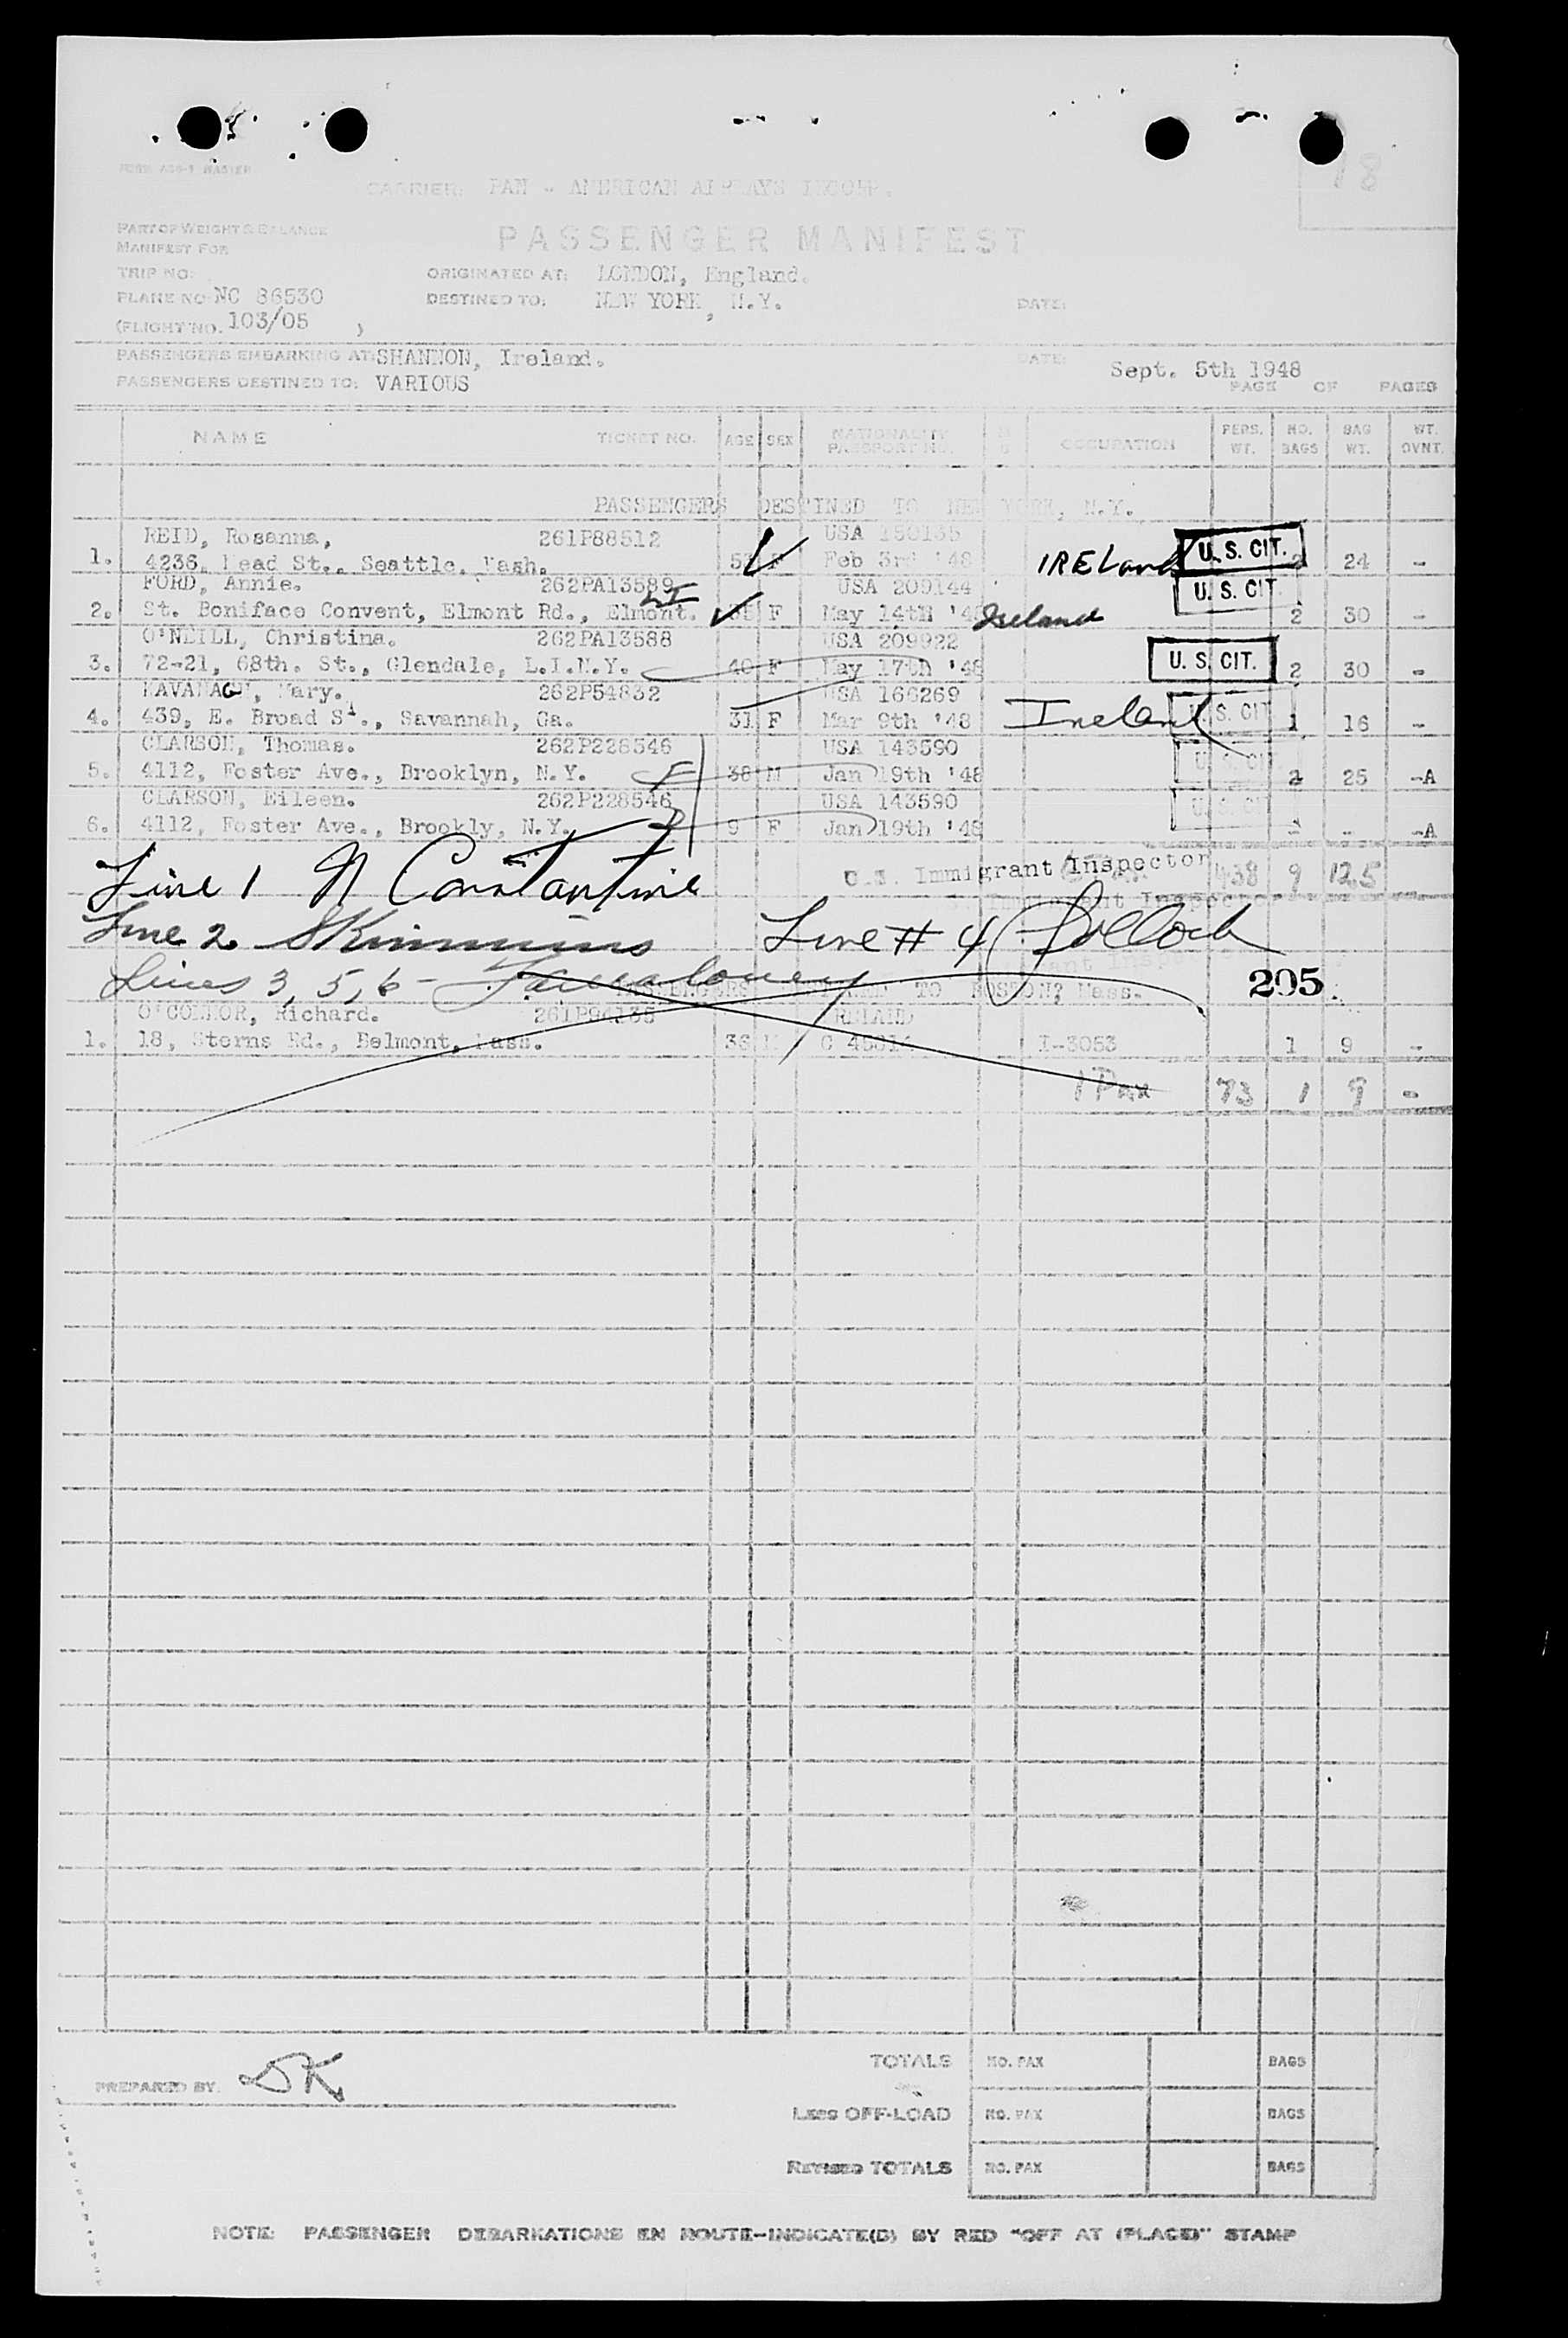 18
FORM ASG-1 MASTER
CARRIER: PAN - AMERICAN AIRWAYS INCORP.
PART OF WEIGHT & BALANCE
MANIFEST FOR
PASSENGER MANIFEST
TRIP NO:
ORIGINATED AT: LONDON, England.
PLANE NO NC 86530
DESTINED TO: NEW YORK, N.Y.
DATE:
(FLIGHT NO. 103/05 )
PASSENGERS EMBARKING AT: SHANNON, Ireland.
DATE: Sept. 5th 1948
PASSENGERS DESTINED TO: VARIOUS
PAGE OF PAGES
NAME TICKET NO. AGE SEX NATIONALITY PASSPORT NO. OCCUPATION PERS. WT. NO. BAGS BAG WT. WT. OVNT.
PASSENGERS DESTINED TO NEW YORK, N.Y.
REID, Rosanna, 261P88512 USA 150135
1. 4236, Mead St., Seattle. Wash. 53 F Feb 3rd '48 IRELand U. S. CIT. 2 24 -
FORD, Annie. 262PA13589 USA 209144 U. S. CIT.
2. St. Boniface Convent, Elmont Rd., Elmont. LI F May 14th '48 Ireland 2 30 -
O'NEILL, Christina. 262PA13588 USA 209922
3. 72-21, 68th. St., Glendale, L.I.N.Y. 40 F May 17th '48 U. S. CIT. 2 30 -
KAVANAGH, Mary. 262P54832 USA 166269
4. 439, E. Broad St., Savannah, Ga. 31 F Mar 9th '48 Ireland U. S. CIT 1 16 -
CLARSON, Thomas. 262P228546 USA 143590
5. 4112, Foster Ave., Brooklyn, N.Y. 38 M Jan 19th '48 U. S. CIT. 2 25 -A
CLARSON, Eileen. 262P228546 USA 143590
6. 4112, Foster Ave., Brookly, N.Y. 9 F Jan 19th '48 U. S. CIT - - -A
U.S. Immigrant Inspector 438 9 125
Line 1 N Constantine
Immigrant Inspector
Line 2 Skimmins Line # 4 Pollock
Lines 3, 5, 6 -
205
PASSENGERS DESTINED TO BOSTON, Mass.
O'CONNOR, Richard. 261P94135 IRELAND
1. 18, Sterns Rd., Belmont, Mass. 36 M I-3053 1 9 -
1 Pax 73 1 9 -
PREPARED BY. DK
TOTALS NO. PAX BAGS
Less OFF-LOAD NO. PAX BAGS
Revised TOTALS NO. PAX BAGS
NOTE: PASSENGER DEBARKATIONS EN ROUTE-INDICATE(D) BY RED "OFF AT (PLACE)" STAMP